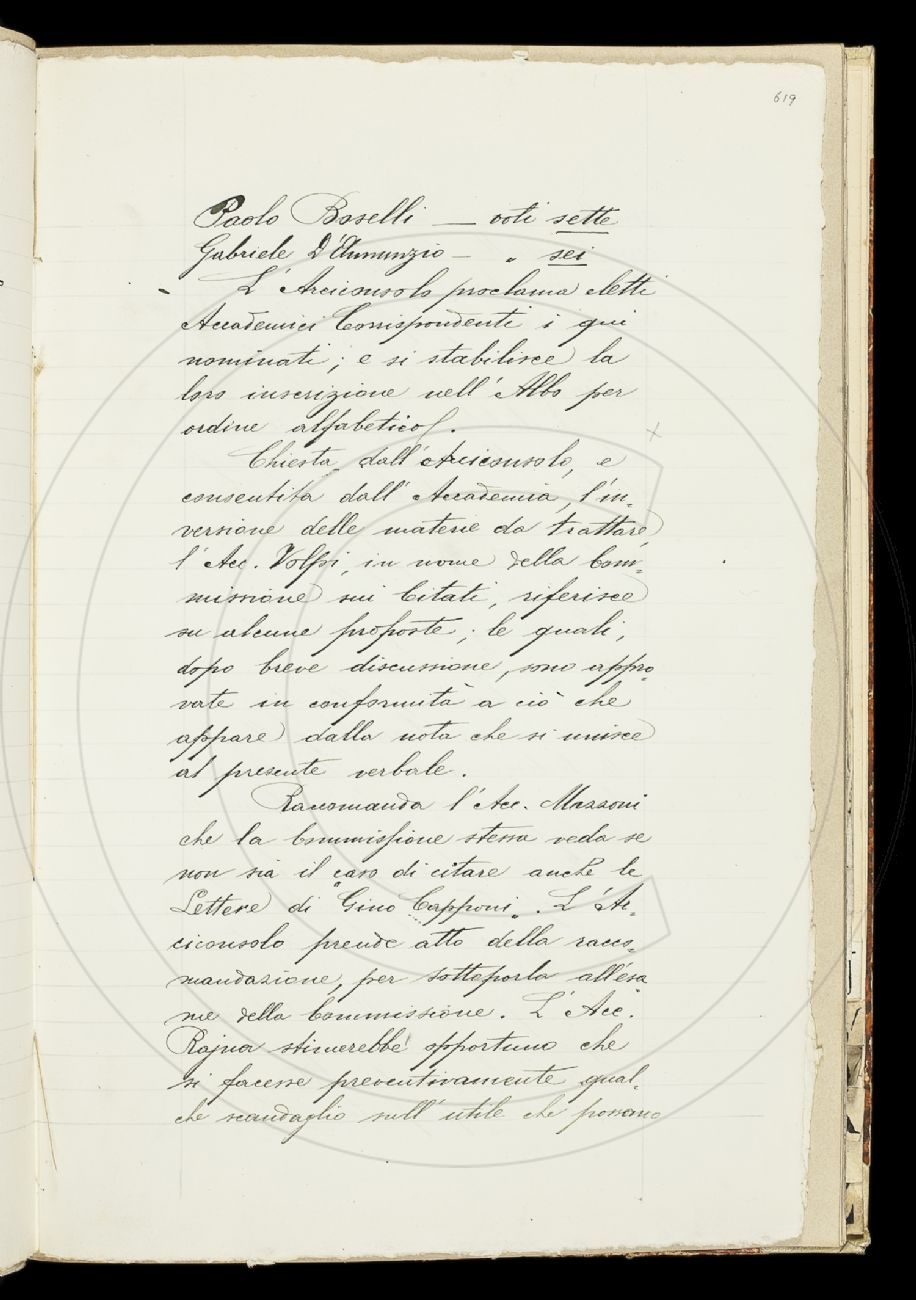 619
Paolo Boselli — voti sette
Gabriele D'Annunzio — " sei
L'Arciconsolo proclama eletti
Accademici Corrispondenti i qui
nominati; e si stabilisce la
loro inscrizione nell'Albo per
ordine alfabetico.
Chiesta dall'Arciconsolo, e
consentita dall'Accademia, l'in-
versione delle materie da trattare
l'Acc. Volpi, in nome della Com-
missione sui Citati, riferisce
su alcune proposte; le quali,
dopo breve discussione, sono appro-
vate in conformità a ciò che
appare dalla nota che si unisce
al presente verbale.
Racomanda l'Acc. Mazzoni
che la Commissione stessa veda se
non sia il caso di citare anche le
Lettere di "Gino Capponi". L'Ar-
ciconsolo prende atto della racco-
mandazione, per sottoporla all'esa
me della Commissione. L'Acc.
Rajna stimerebbe opportuno che
si facesse preventivamente qual-
che scandaglio sull'utile che possono